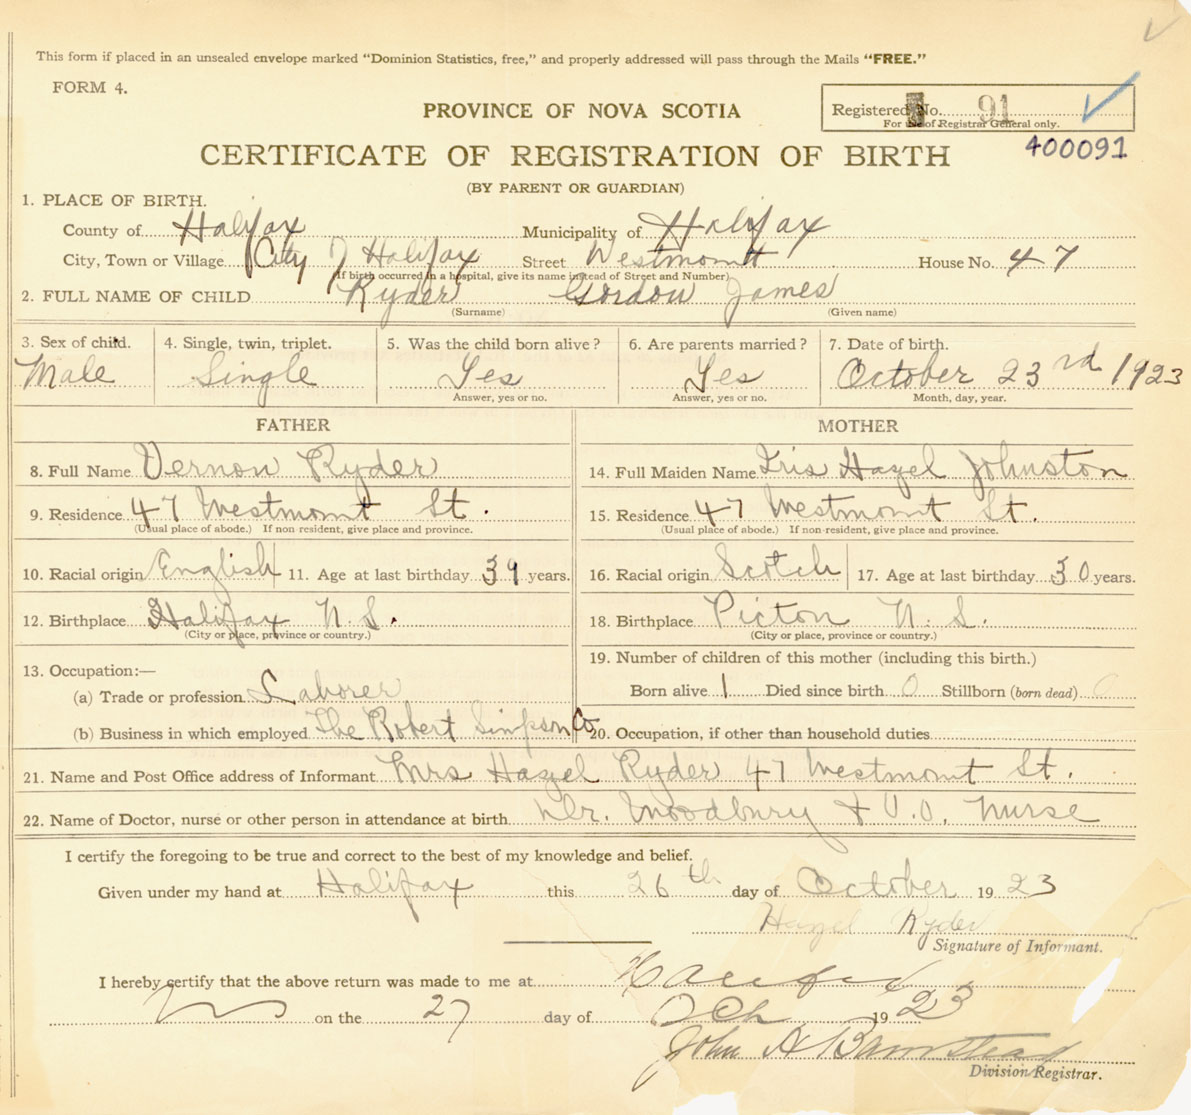 This form if placed in an unsealed envelope marked "Dominion Statistics, free," and properly addressed will pass through the Mails "FREE."
FORM 4.
PROVINCE OF NOVA SCOTIA
Registered No. 91
For use of Registrar General only.
400091
CERTIFICATE OF REGISTRATION OF BIRTH
(BY PARENT OR GUARDIAN)
1. PLACE OF BIRTH.
County of Halifax Municipality of Halifax
City, Town or Village City of Halifax Street Westmount House No. 47
(If birth occurred in a hospital, give its name instead of Street and Number)
2. FULL NAME OF CHILD Ryder Gordon James
(Surname) (Given name)
3. Sex of child. 4. Single, twin, triplet. 5. Was the child born alive? 6. Are parents married? 7. Date of birth.
Male Single Yes Yes October 23rd 1923
Answer, yes or no. Answer, yes or no. Month, day, year.
FATHER MOTHER
8. Full Name Vernon Ryder 14. Full Maiden Name Iris Hazel Johnston
9. Residence 47 Westmount St. 15. Residence 47 Westmount St.
(Usual place of abode.) If non resident, give place and province. (Usual place of abode.) If non-resident, give place and province.
10. Racial origin English 11. Age at last birthday 39 years. 16. Racial origin Scotch 17. Age at last birthday 30 years.
12. Birthplace Halifax N.S. 18. Birthplace Picton N.S.
(City or place, province or country.) (City or place, province or country.)
13. Occupation:— 19. Number of children of this mother (including this birth.)
(a) Trade or profession Laborer Born alive 1 Died since birth 0 Stillborn (born dead) 0
(b) Business in which employed The Robert Simpson Co 20. Occupation, if other than household duties
21. Name and Post Office address of Informant Mrs Hazel Ryder 47 Westmount St.
22. Name of Doctor, nurse or other person in attendance at birth Dr. Woodbury & V.O. Nurse
I certify the foregoing to be true and correct to the best of my knowledge and belief.
Given under my hand at Halifax this 26th day of October 1923
Hazel Ryder
Signature of Informant.
I hereby certify that the above return was made to me at Halifax
on the 27 day of Oct 1923
John A Barnstead
Division Registrar.